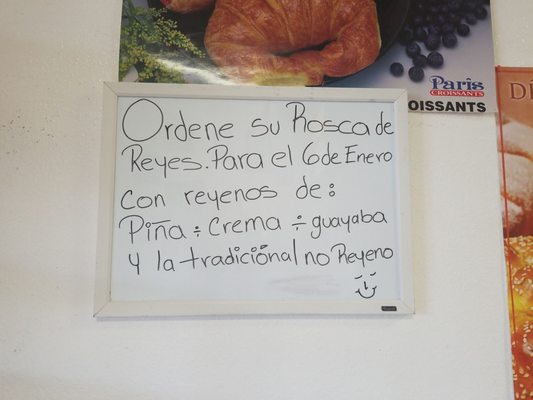 Paris
CROISSANTS
CROISSANTS
DE
Ordene su Rosca de
Reyes. Para el 6 de Enero
con reyenos de:
Piña ÷ Crema ÷ guayaba
y la tradicional no Reyeno